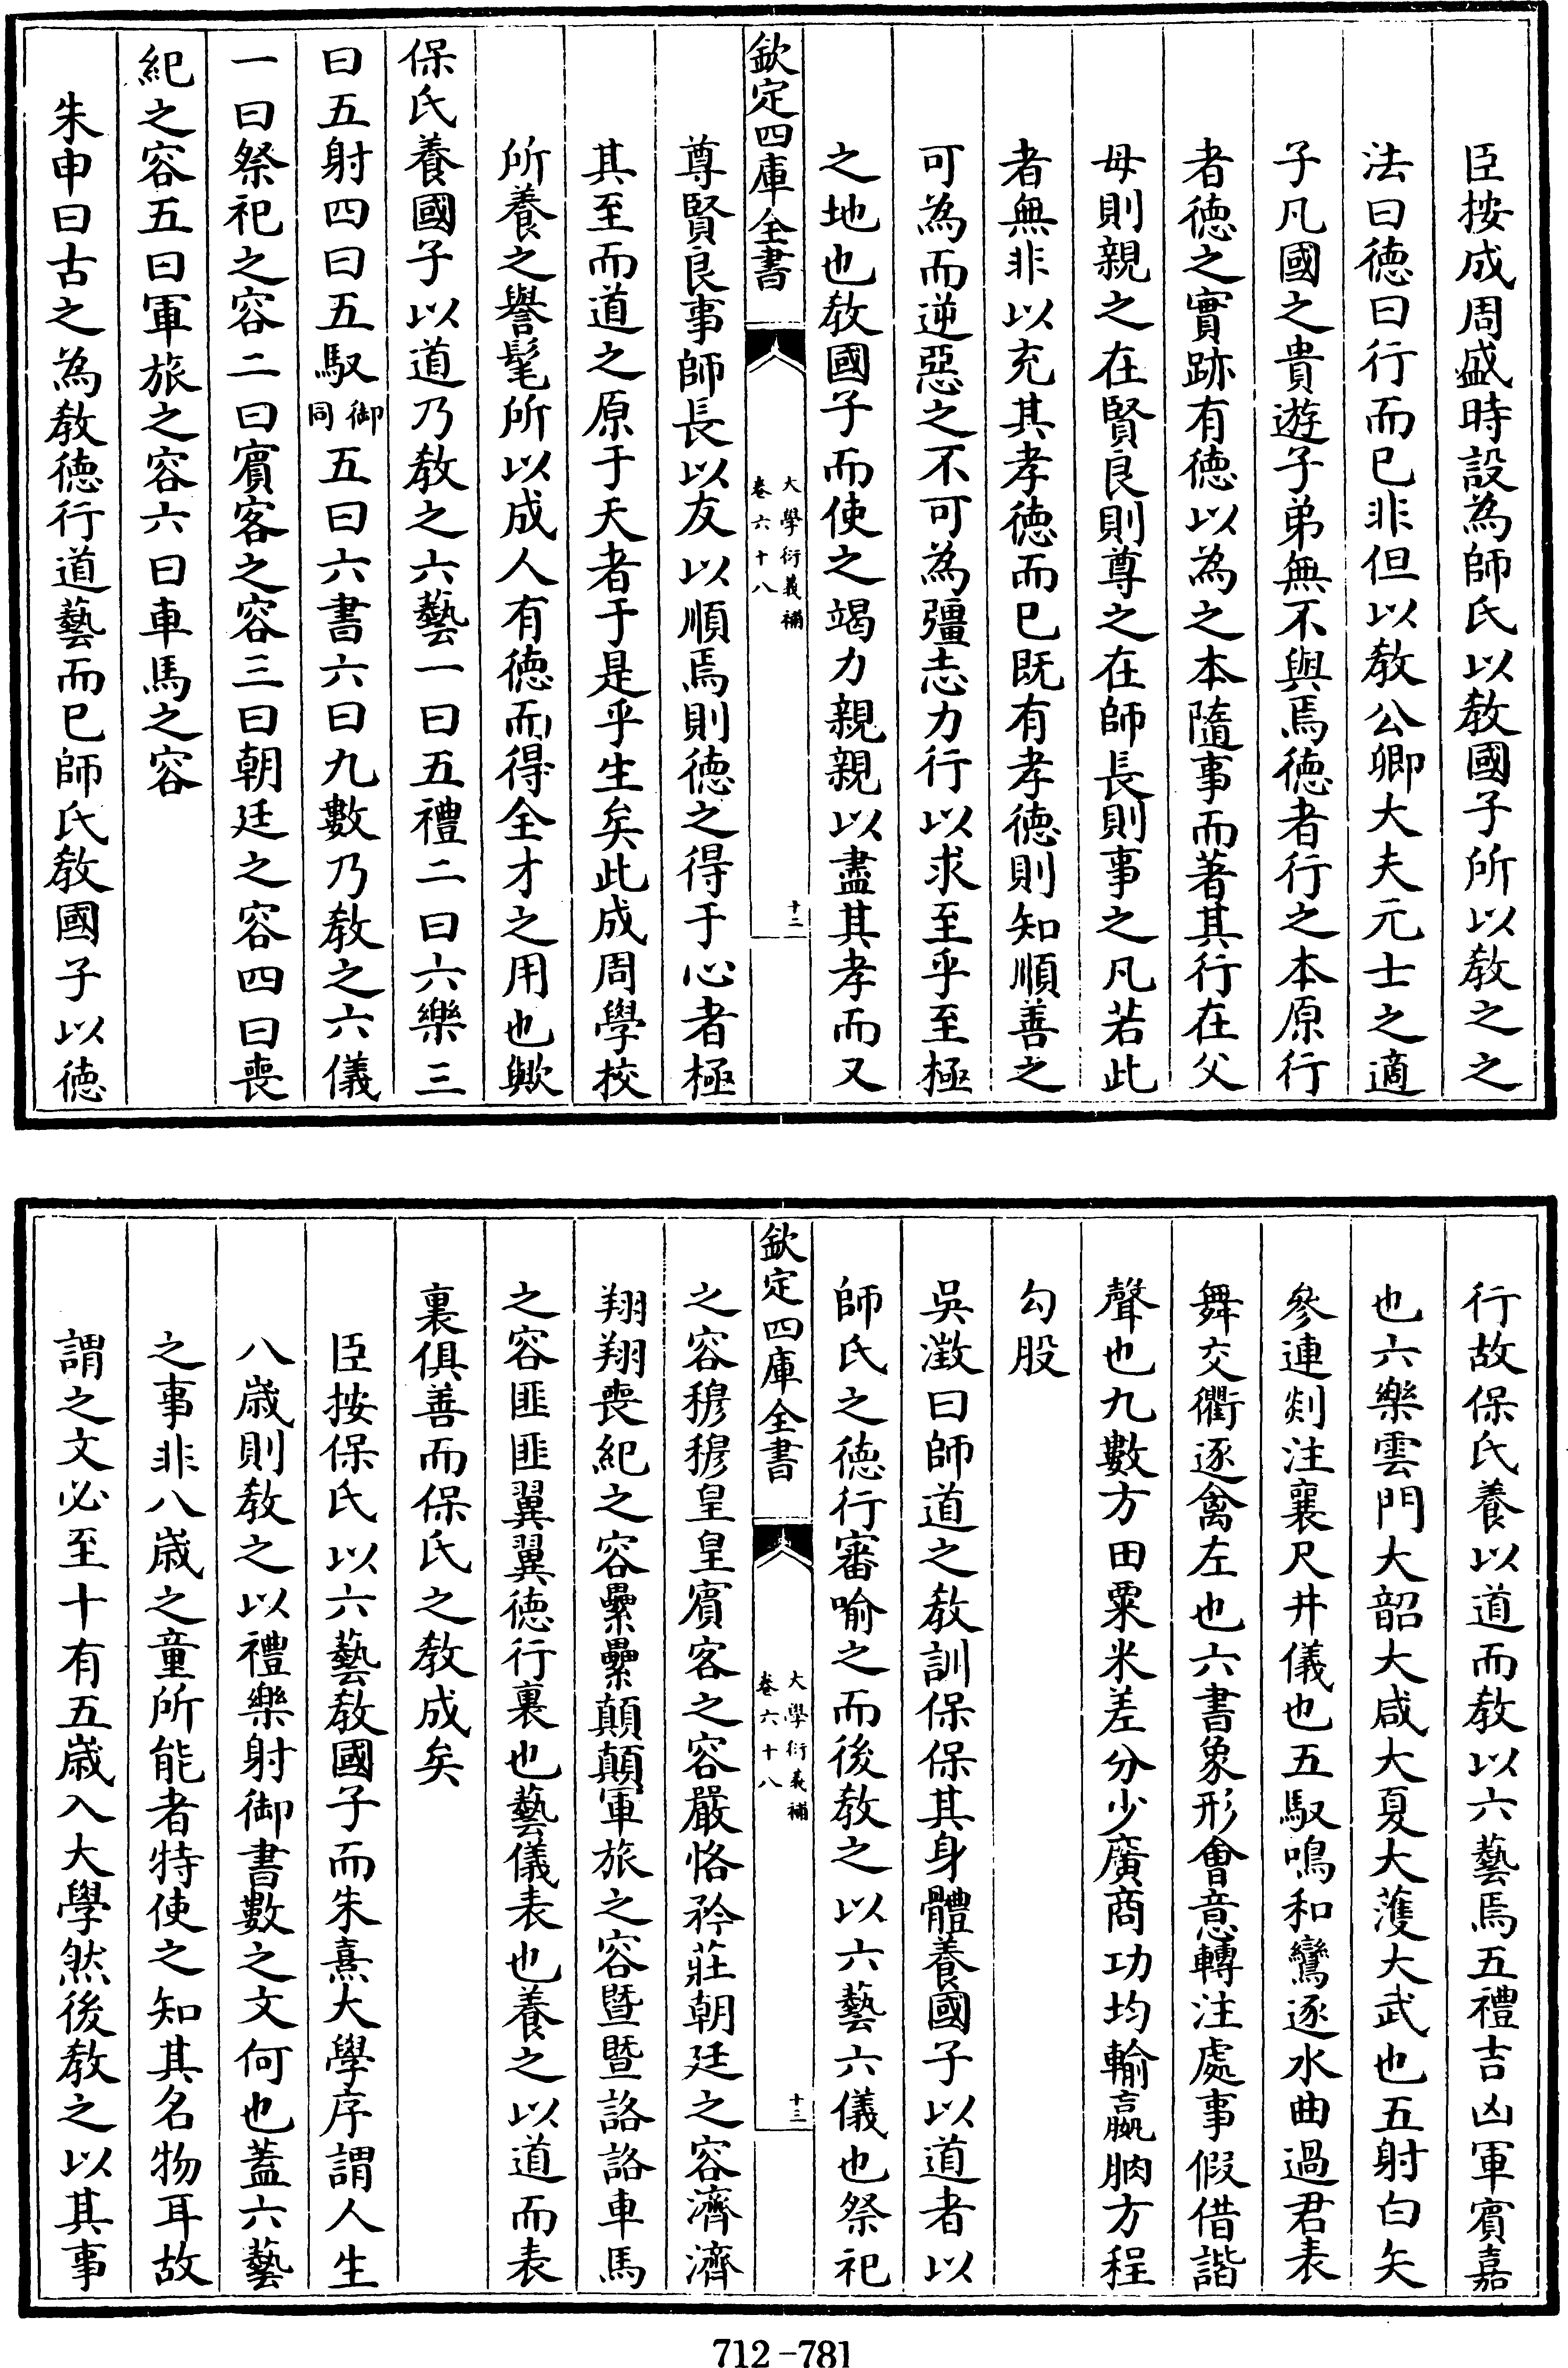 臣按成周盛時設為師氏以教國子所以教之之
法曰德曰行而已非但以教公卿大夫元士之適
子凡國之貴遊子弟無不與焉德者行之本原行
者德之實跡有德以為之本隨事而著其行在父
母則親之在賢良則尊之在師長則事之凡若此
者無非以充其孝德而已既有孝德則知順善之
可為而逆惡之不可為彊志力行以求至乎至極
之地也教國子而使之竭力親親以盡其孝而又
欽定四庫全書
大學衍義補
卷六十八
十二
尊賢良事師長以友以順焉則德之得于心者極
其至而道之原于天者于是乎生矣此成周學校
所養之譽髦所以成人有德而得全才之用也歟
保氏養國子以道乃教之六藝一曰五禮二曰六樂三
曰五射四曰五馭御同五曰六書六曰九數乃教之六儀
一曰祭祀之容二曰賓客之容三曰朝廷之容四曰喪
紀之容五曰軍旅之容六曰車馬之容
朱申曰古之為教德行道藝而已師氏教國子以德
行故保氏養以道而教以六藝焉五禮吉凶軍賓嘉
也六樂雲門大韶大咸大夏大濩大武也五射白矢
參連剡注襄尺井儀也五馭鳴和鸞逐水曲過君表
舞交衢逐禽左也六書象形會意轉注處事假借諧
聲也九數方田粟米差分少廣商功均輸嬴朒方程
勾股
吳澂曰師道之教訓保保其身體養國子以道者以
師氏之德行審喻之而後教之以六藝六儀也祭祀
欽定四庫全書
大學衍義補
卷六十八
十三
之容穆穆皇皇賓客之容嚴恪矜莊朝廷之容濟濟
翔翔喪紀之容纍纍顛顛軍旅之容暨暨詻詻車馬
之容匪匪翼翼德行裏也藝儀表也養之以道而表
裏俱善而保氏之教成矣
臣按保氏以六藝教國子而朱熹大學序謂人生
八歲則教之以禮樂射御書數之文何也蓋六藝
之事非八歲之童所能者特使之知其名物耳故
謂之文必至十有五歲入大學然後教之以其事
712-781